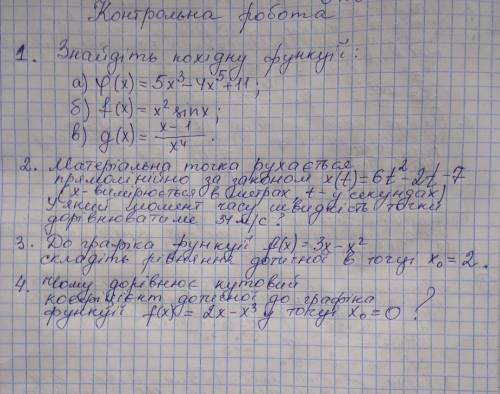 Контрольна робота
1. Знайдіть похідну функції:
а) φ(x) = 5x³ - 4x⁵ + 11;
б) f(x) = x² sin x;
в) g(x) = (x - 1)/x⁴.
2. Матеріальна точка рухається
прямолінійно за законом x(t) = 6t² - 2t - 7
(x - вимірюється в метрах, t - у секундах)
У який момент часу швидкість точки
дорівнюватиме 34 м/с?
3. До графіка функції f(x) = 3x - x²
складіть рівняння дотичної в точці x₀ = 2.
4. Чому дорівнює кутовий
коефіцієнт дотичної до графіка
функції f(x) = 2x - x³ у точці x₀ = 0 ?